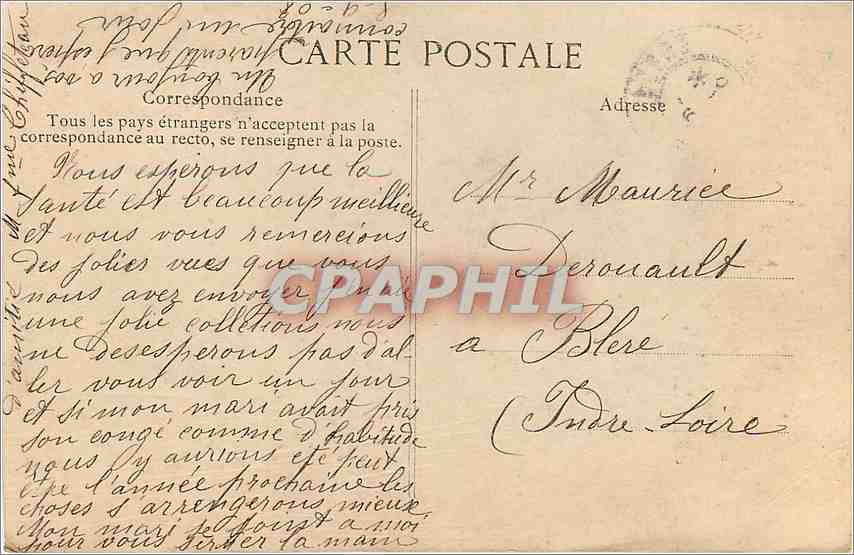 CARTE POSTALE
Correspondance
Tous les pays étrangers n'acceptent pas la
correspondance au recto, se renseigner à la poste.
Nous esperons que la
santé est beaucoup meillieure
et nous vous remercions
des jolies vues que vous
nous avez envoyer j'en ai
une jolie colletions nous
ne desesperons pas d'al-
ler vous voir un jour
et si mon mari avait pris
son congé comme d'habitude
nous y aurions eté peut
etre l'année prochaine les
choses s'arrengerons mieuse
Mon mari se joint a moi
pour vous serrer la main
d'amitié
Un bonjour a vos
parents que j'espere
connaitre un jour
Adresse
Mr Maurice
Derouault
a Bleré
(Indre-Loire
CPAPHIL